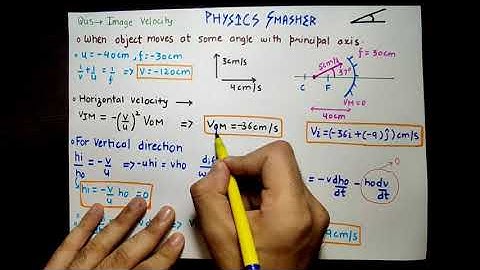 Qus→ Image Velocity
PHYSICS SMASHER
When object moves at some angle with principal axis
u = -40cm, f = -30cm
1/v + 1/u = 1/f => v = -120cm
3cm/s
4cm/s
f = 30cm
5cm/s
37°
C F
VM=0
40cm
Horizontal velocity →
VIM = -(v/u)² VOM => VOM = -36cm/s
Vi = (-36i + (-9)ĵ) cm/s
For vertical direction
hi/ho = -v/u => -uhi = vho
hi = -v/u ho = 0
= -v dho/dt - ho dv/dt
0
9cm/s